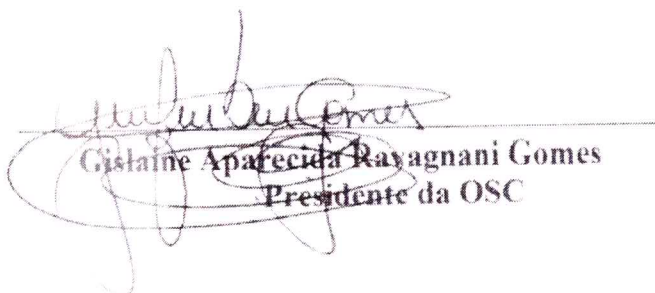 Gislaine Aparecida Ravagnani Gomes
Presidente da OSC